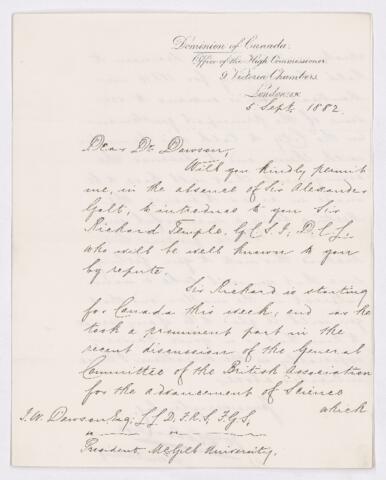 Dominion of Canada.
Office of the High Commissioner
9 Victoria Chambers
London: S.W.
5 Sept. 1882.
Dear Dr. Dawson,
Will you kindly permit
me, in the absence of Sir Alexander
Galt, to introduce to you Sir
Richard Temple, G.C.S.I., D.C.L.
who will be well known to you
by repute.
Sir Richard is starting
for Canada this week, and as he
took a prominent part in the
recent discussion of the General
Committee of the British Association
for the advancement of Science
which
J. W. Dawson Esq: LL.D, F.R.S, F.G.S,
President McGill University.